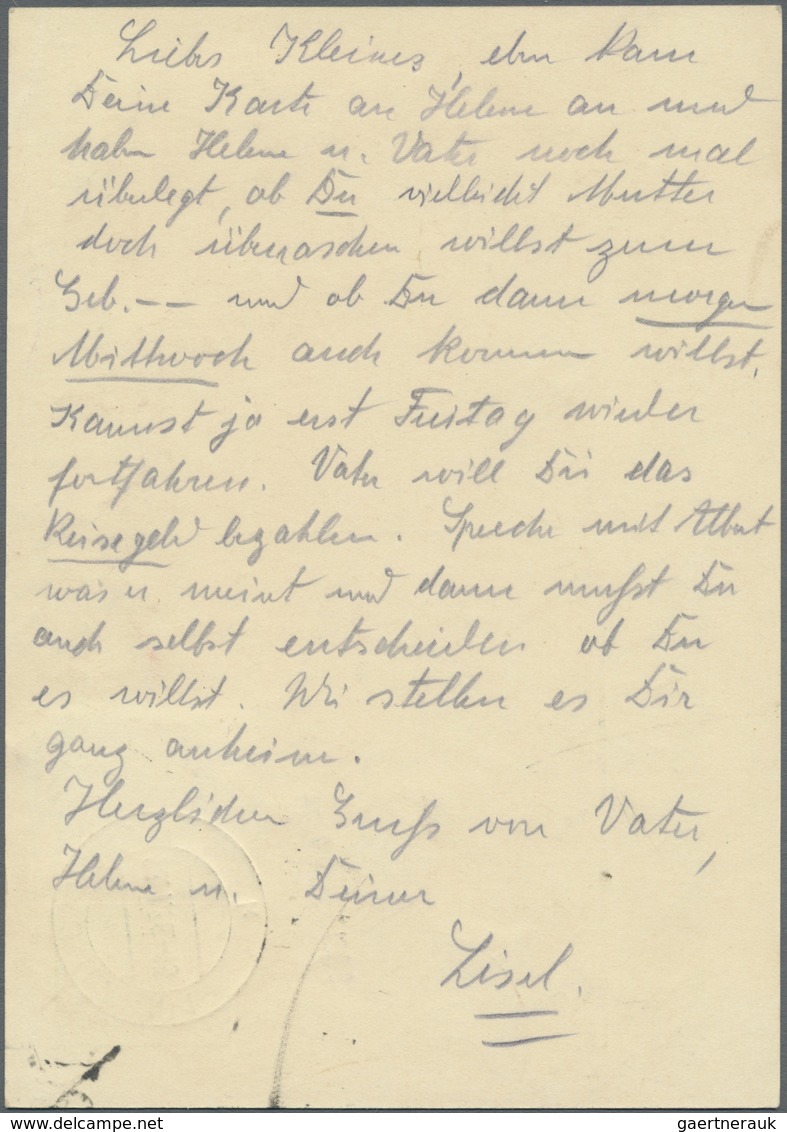 Liebes Kleines, eben kam
Deine Karte an Helene an und
haben Helene u. Vater noch mal
überlegt, ob Du vielleicht Mutter
doch überraschen willst zum
Geb. — — und ob Du dann morgen
Mittwoch auch kommen willst.
Kannst ja erst Freitag wieder
fortfahren. Vater will Dir das
Reisegeld bezahlen. Spreche mit Albert
was er meint und dann mußt Du
auch selbst entscheiden ob Du
es willst. Wir stellen es Dir
ganz anheim.
Herzlichen Gruß von Vater,
Helene u. Deiner
Lisel.
gaertnerauk